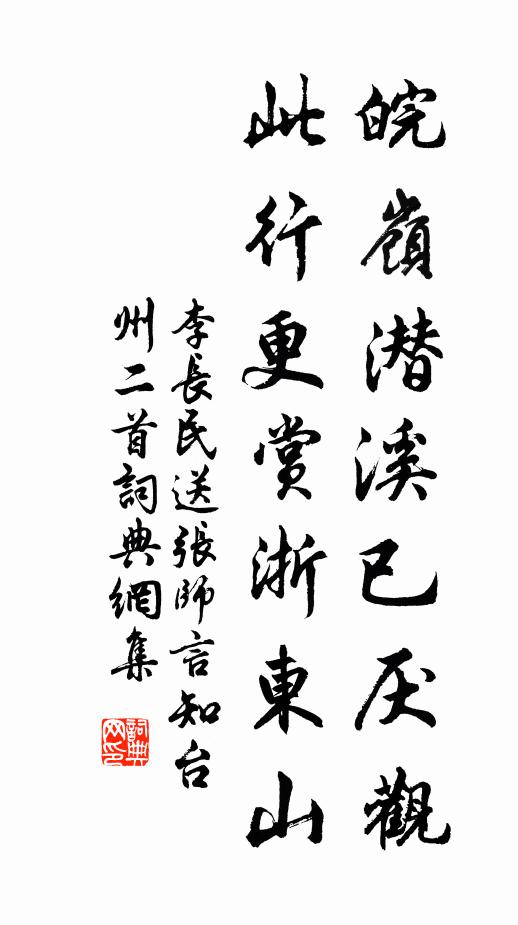 皖嶺潜溪已厌觀
此行更賞浙東山
李長民送張師言知台
州二首詞典網集
詞典网印